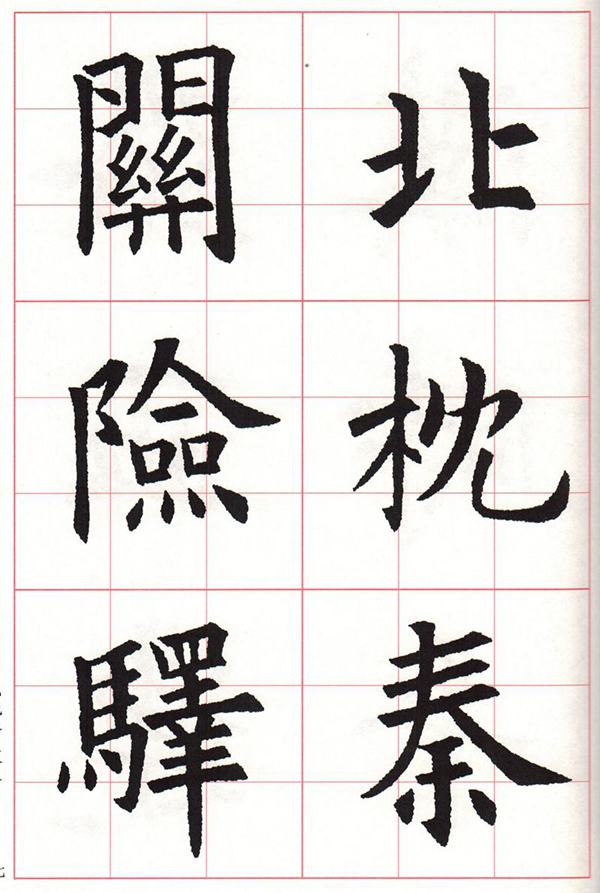 北枕秦
關險驛